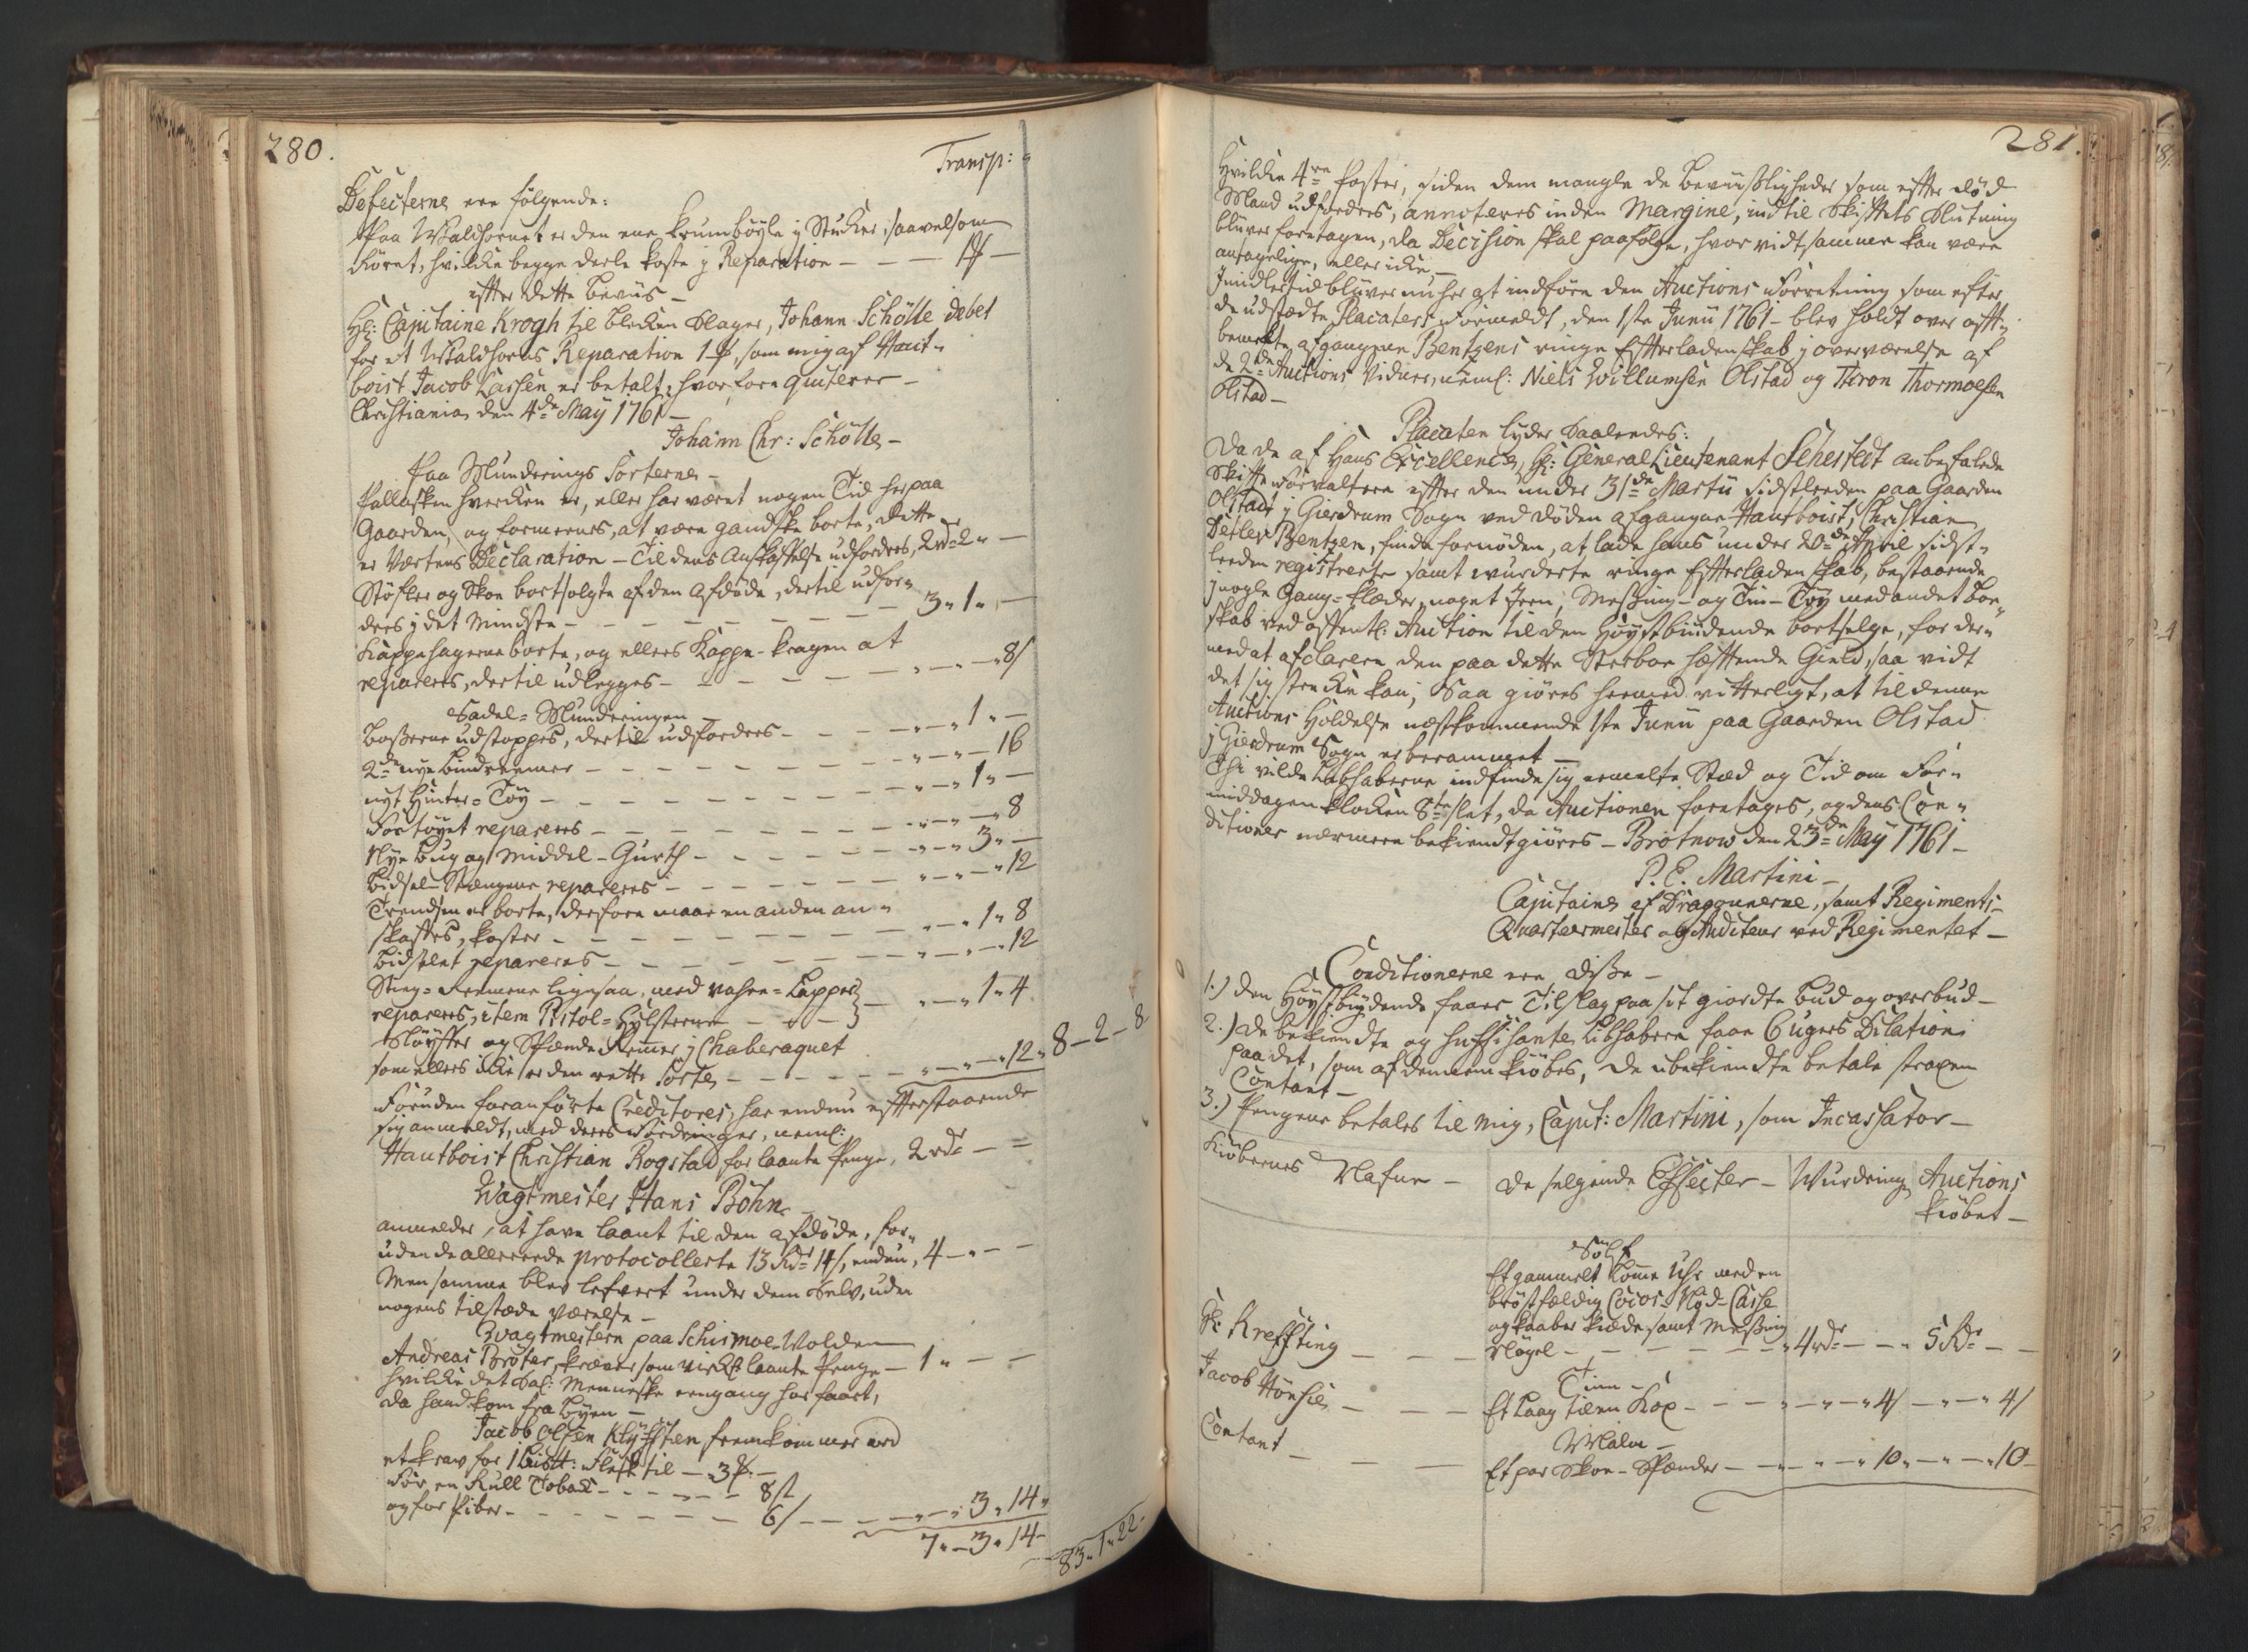 280.
Transp:
Defecterne ere følgende:
Paa Waldhornet er den ene Krumbøyle i Stücker, saavelsom
Røret, hvilcke begge deele koste j Reparation — — —
efter dette beviis —
Hr: Capitaine Krogh til Blecken Slager, Johann Schölle debet
for et Waldhorns Reparation 1 , som mig af Haut-
boist Jacob Larssen er betalt, hvorfore qviterer —
Christiania den 4de May 1761 —
Johann Chr: Schölle —
Paa Munderings Sorterne —
Pallasken hvercken er, eller har været nogen Tid her paa
Gaarden, og formeenes, at være gandske borte, dette
er Værtens Declaration — Til dens Anskaffelse udfordres, 2 rd 2 „ —
Støfler og Skoe bortsolgte af den afdøde, dertil udfor-
dres i det mindste — — — — — — 3 „ 1 „ —
Kappehagerne borte, og ellers Kappe-Kragen at
repareres, dertil udlegges — — — — — „ — „ — 8 ß
Sadel-Munderingen —
Bosserne udstoppes, dertil udfordres — — — „ — „ 1 „ —
2de nye Bindreemer — — — — — — „ — „ — 16
nyt Hinter-Tøy — — — — — — — „ — „ 1 „ —
Fortøyet repareres — — — — — — „ — „ — „ 8
Nye Bug og Middel-Gurth — — — — — „ — „ 3 „ —
Bidsel-Stængene repareres — — — — — „ — „ — „ 12
Trendsen er borte, derfore maae en anden an-
skaffes, koster — — — — — — — „ — „ 1 „ 8
Bidselet repareres — — — — — — „ — „ — 12
Stieg-Reemene ligesaa, med -Lapper
repareres, item Pistol-Hylsterne — — — } — „ — „ 1 „ 4
Sløyffer og Spænde Remer j Chaberaquet
som ellers icke er den rette Sorte — — — — „ — „ — 12 „ 8 — 2 — 8
Foruden foranførte Creditores, har endnu efterstaaende
sig anmeldt, med deres Fordringer, neml:
Hautboist Christian Rogstad for laante Penge, 2 rdr — =
Wagtmester Hans Böhn
anmelder, at have laant til den afdøde, for-
uden de allereede protocollerte 13 Rdr 14 ß, endnu, 4 — „ — —
Men samme blev lefvert under dem Selv, uden
nogens tilstæde Værelse —
Wagtmestern paa Schismoe-Wolden
Andreas Bröter, kræver som virkl: laante Penge — 1 „ — —
hvilcke det Sal: Menneske eengang har faaet,
da hand kom fra Byen —
Jacob Olsen Klöfften fremkommer med
et krav for 1 Bissm: Flesk til — 3 —
For en Rull Tobak — — — — 8 ß
og for Piber — — — — — — 6 ß — — — „ — „ 3 „ 14 „
7 „ — 3 „ 14 —
83 „ 1 „ 22 „
281.
Hvilcke 4re Poster, siden dem mangle de Beviisligheder som efter død
Mand udfordres, annoteres inden Margine, indtil Skiftets Slutning
bliver foretagen, da Decision skal paafølge, hvorvidt samme kan være
antagelige, eller icke —
Imidlertid bliver nu her at indføre den Auctions Forretning som efter
de udstædte Placater, Formeldt, den 1ste Junii 1761 — blev holdt over oft-
bemelte afgangne Bentzens ringe Efterladenskab, j overværelse af
de 2de Auctions Vidner, neml: Niels Willumsen Olstad og Thron Thormoesen
Olstad —
Placaten lyder Saaledes:
Da de af Hans Excellence, Hr: General Lieutenant Schestedt anbefalede
Skifte Forvaltere efter den under 31de Martii sidstleeden paa Gaarden
Olstad, j Gierdrum Sogn ved døden afgangne Hautboist, Christian
Detlev Bentzen, finde fornøden, at lade hans under 20de April sidst-
leeden registrerte samt wurderte ringe Efterladenskab, bestaaende
j nogle Gang-Klæder, noget Jern, Messing- og Tin-Tøy med andet Boe-
skab ved offentl: Auction til den Høystbiudende bortselge, for der-
med at afclarere den paa dette Sterboe hæftende Gield, saa vidt
det sig strecke kan; Saa giøres hermed vitterligt, at til denne
Auctions Holdelse næstkommende 1ste Junii paa Gaarden Olstad
j Gierdrum Sogn er berammet —
Thi vilde Liebhaberne indfinde sig ermelte Stæd og Tid om For-
middagen Klocken 8te slet, da Auctionen foretages, og dens Con-
ditioner nærmere bekiendtgiøres — Brotnow den 23de May 1761 —
P. E. Martini —
Capitaine af Dragounerne, samt Regiments-
Qvarteermester og Auditeur ved Regimentet —
Conditionerne ere disse —
1.) Den Høystbiydende faaer Tilslag paa sit giordte Bud og overbud —
2.) De bekiendte og suffisante Liebhabere faae 6 Ugers Dilation
paa det, som af dennem kiøbes, de ubekiendte betale straxen
Contant —
3.) Pengene betales til mig, Capit: Martini, som Incassator —
Kiøbernes Nafne — De selgende Effecter — Wurdering Auctions
Kiøbet —
Sølf
Et gammelt Lomme Uhr med en
brøstfældig Cocos-Nød-Casse
og Kaaber Kiæde, samt Messing
Hr: Kreffting — — — Nøgel — — — — — „ 4 rdr — — „ 5 Rdr — —
Tinn —
Jacob Hönsie — — — Et Laag til en Kop — — — „ — „ — „ 4 ß — „ — „ 4 ß
Malm —
Contant — — — Et par Skoe-Spænder — — „ — „ 10 „ — „ — „ 10 —